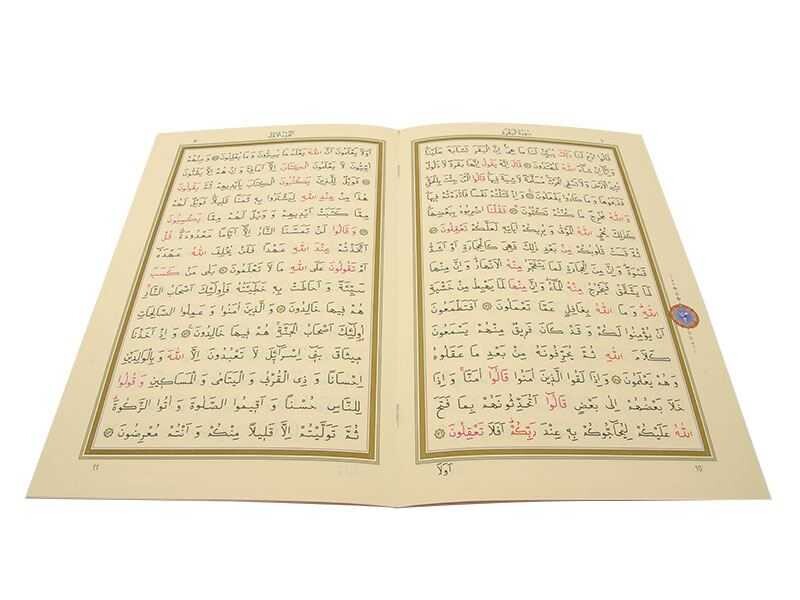 سورة البقرة
قَالُوا ادْعُ لَنَا رَبَّكَ يُبَيِّنْ لَنَا مَا هِيَ اِنَّ الْبَقَرَ تَشَابَهَ عَلَيْنَا
وَاِنَّا اِنْ شَاءَ اللهُ لَمُهْتَدُونَ قَالَ اِنَّهُ يَقُولُ اِنَّهَا بَقَرَةٌ لَا ذَلُولٌ
تُثِيرُ الْاَرْضَ وَلَا تَسْقِى الْحَرْثَ مُسَلَّمَةٌ لَا شِيَةَ فِيهَا قَالُوا الْئٰنَ جِئْتَ بِالْحَقِّ
فَذَبَحُوهَا وَمَا كَادُوا يَفْعَلُونَ وَاِذْ قَتَلْتُمْ نَفْسًا فَادَّارَءْتُمْ فِيهَا
وَاللهُ مُخْرِجٌ مَا كُنْتُمْ تَكْتُمُونَ فَقُلْنَا اضْرِبُوهُ بِبَعْضِهَا
كَذٰلِكَ يُحْيِى اللهُ الْمَوْتٰى وَيُرِيكُمْ اٰيَاتِهِ لَعَلَّكُمْ تَعْقِلُونَ
ثُمَّ قَسَتْ قُلُوبُكُمْ مِنْ بَعْدِ ذٰلِكَ فَهِىَ كَالْحِجَارَةِ اَوْ اَشَدُّ
قَسْوَةً وَاِنَّ مِنَ الْحِجَارَةِ لَمَا يَتَفَجَّرُ مِنْهُ الْاَنْهَارُ وَاِنَّ مِنْهَا
لَمَا يَشَّقَّقُ فَيَخْرُجُ مِنْهُ الْمَاءُ وَاِنَّ مِنْهَا لَمَا يَهْبِطُ مِنْ خَشْيَةِ
اللهِ وَمَا اللهُ بِغَافِلٍ عَمَّا تَعْمَلُونَ اَفَتَطْمَعُونَ
اَنْ يُؤْمِنُوا لَكُمْ وَقَدْ كَانَ فَرِيقٌ مِنْهُمْ يَسْمَعُونَ
كَلَامَ اللهِ ثُمَّ يُحَرِّفُونَهُ مِنْ بَعْدِ مَا عَقَلُوهُ
وَهُمْ يَعْلَمُونَ وَاِذَا لَقُوا الَّذِينَ اٰمَنُوا قَالُوا اٰمَنَّا وَاِذَا
خَلَا بَعْضُهُمْ اِلٰى بَعْضٍ قَالُوا اَتُحَدِّثُونَهُمْ بِمَا فَتَحَ
اللهُ عَلَيْكُمْ لِيُحَاجُّوكُمْ بِهِ عِنْدَ رَبِّكُمْ اَفَلَا تَعْقِلُونَ
اَوَلَا
اَوَلَا يَعْلَمُونَ اَنَّ اللهَ يَعْلَمُ مَا يُسِرُّونَ وَمَا يُعْلِنُونَ وَمِنْهُمْ
اُمِّيُّونَ لَا يَعْلَمُونَ الْكِتَابَ اِلَّا اَمَانِىَّ وَاِنْ هُمْ اِلَّا يَظُنُّونَ
فَوَيْلٌ لِلَّذِينَ يَكْتُبُونَ الْكِتَابَ بِاَيْدِيهِمْ ثُمَّ يَقُولُونَ
هٰذَا مِنْ عِنْدِ اللهِ لِيَشْتَرُوا بِهِ ثَمَنًا قَلِيلًا فَوَيْلٌ لَهُمْ
مِمَّا كَتَبَتْ اَيْدِيهِمْ وَوَيْلٌ لَهُمْ مِمَّا يَكْسِبُونَ
وَقَالُوا لَنْ تَمَسَّنَا النَّارُ اِلَّا اَيَّامًا مَعْدُودَةً قُلْ
اَتَّخَذْتُمْ عِنْدَ اللهِ عَهْدًا فَلَنْ يُخْلِفَ اللهُ عَهْدَهُ
اَمْ تَقُولُونَ عَلَى اللهِ مَا لَا تَعْلَمُونَ بَلٰى مَنْ كَسَبَ
سَيِّئَةً وَاَحَاطَتْ بِهِ خَطِيئَتُهُ فَاُولٰئِكَ اَصْحَابُ النَّارِ
هُمْ فِيهَا خَالِدُونَ وَالَّذِينَ اٰمَنُوا وَعَمِلُوا الصَّالِحَاتِ
اُولٰئِكَ اَصْحَابُ الْجَنَّةِ هُمْ فِيهَا خَالِدُونَ وَاِذْ اَخَذْنَا
مِيثَاقَ بَنِى اِسْرَائِلَ لَا تَعْبُدُونَ اِلَّا اللهَ وَبِالْوَالِدَيْنِ
اِحْسَانًا وَذِى الْقُرْبٰى وَالْيَتَامٰى وَالْمَسَاكِينِ وَقُولُوا
لِلنَّاسِ حُسْنًا وَاَقِيمُوا الصَّلٰوةَ وَاٰتُوا الزَّكٰوةَ
ثُمَّ تَوَلَّيْتُمْ اِلَّا قَلِيلًا مِنْكُمْ وَاَنْتُمْ مُعْرِضُونَ